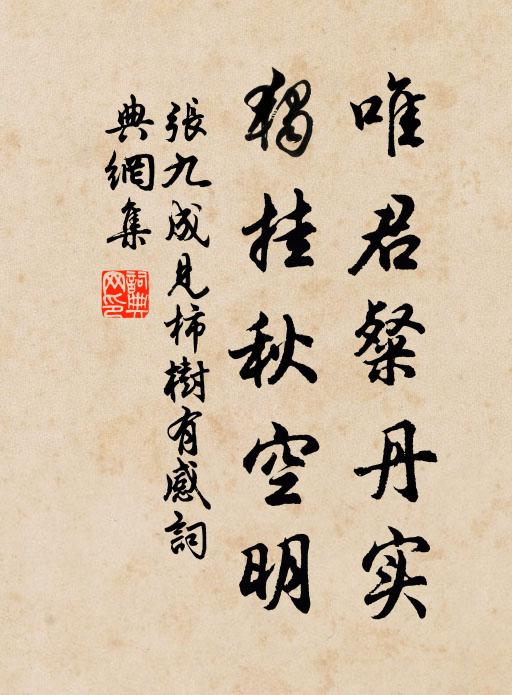 唯君粲丹实
独挂秋空明
張九成見柿樹有感詞
典網集
詞典网印